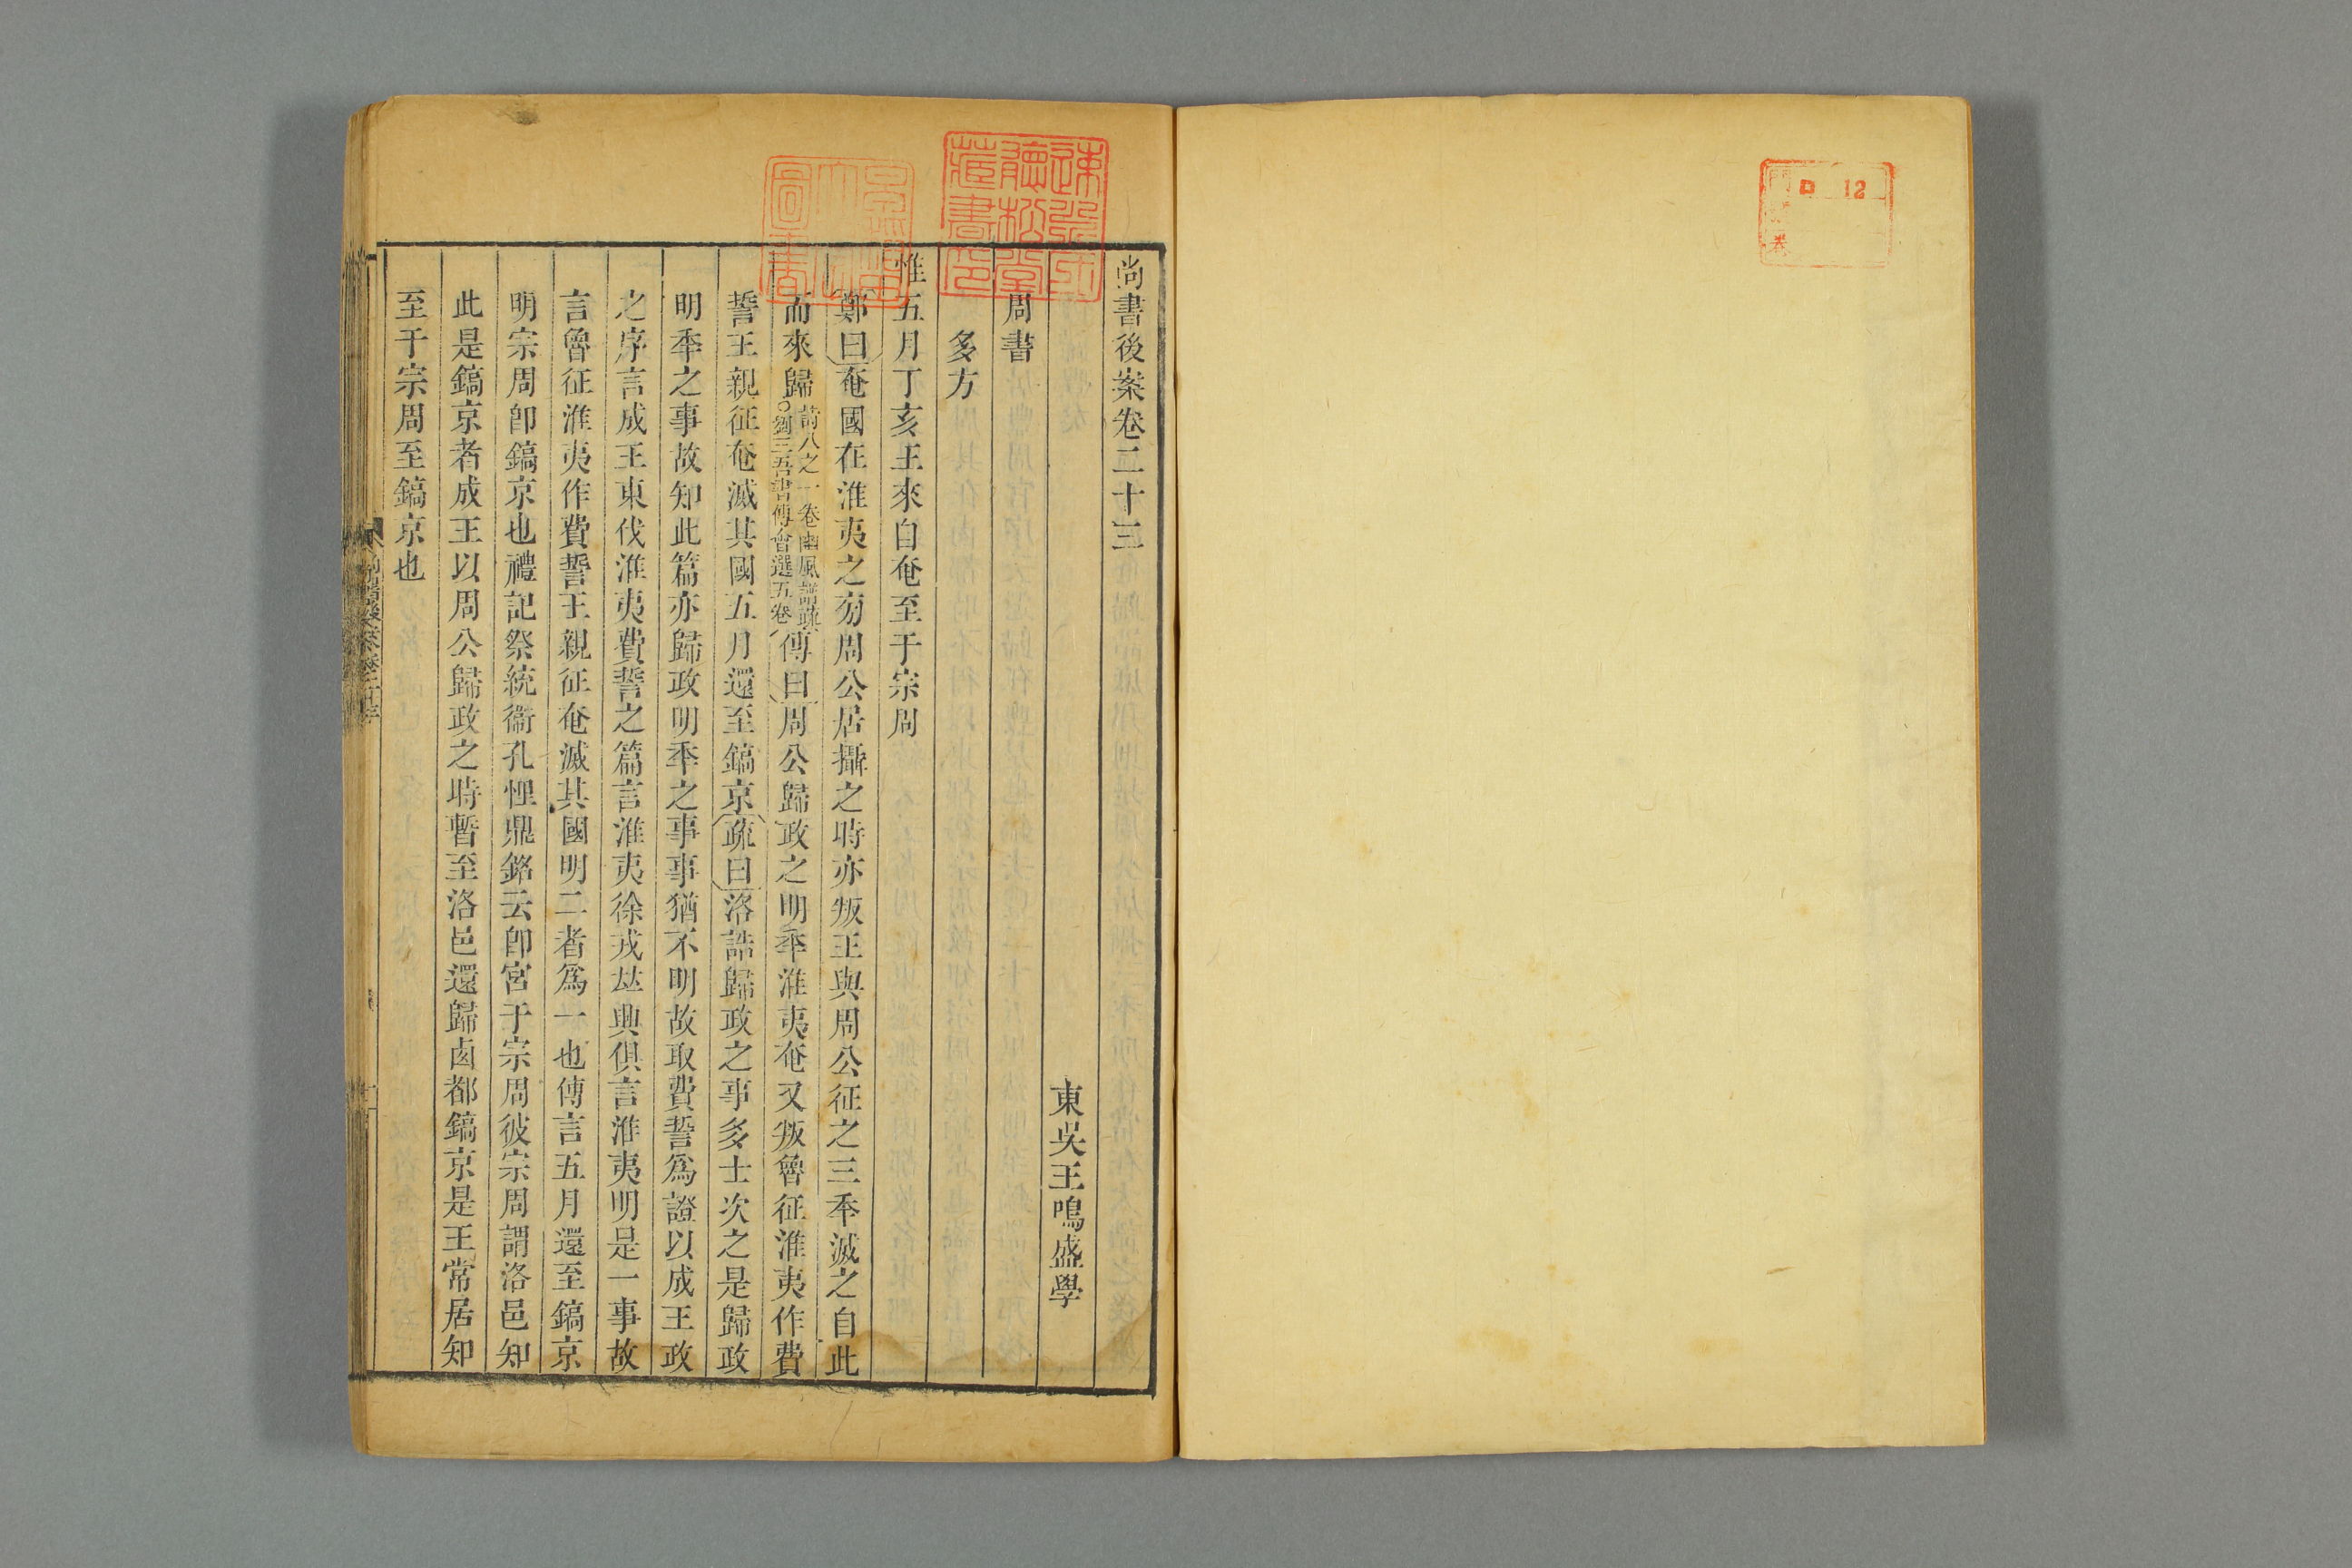 尚書後案卷二十三
東吳王鳴盛學
周書
多方
惟五月丁亥王來自奄至于宗周
鄭曰奄國在淮夷之旁周公居攝之時亦叛王與周公征之三年滅之自此
而來歸
詩八之一卷豳風譜疏
○劉三吾書傳會選五卷
傳曰周公歸政之明年淮夷奄又叛魯征淮夷作費
誓王親征奄滅其國五月還至鎬京疏曰洛誥歸政之事多士次之是歸政
明年之事故知此篇亦歸政明年之事事猶不明故取費誓爲證以成王政
之序言成王東伐淮夷費誓之篇言淮夷徐戎並興俱言淮夷明是一事故
言魯征淮夷作費誓王親征奄滅其國明二者爲一也傳言五月還至鎬京
明宗周卽鎬京也禮記祭統衞孔悝鼎銘云卽宮于宗周彼宗周謂洛邑知
此是鎬京者成王以周公歸政之時暫至洛邑還歸卤都鎬京是王常居知
至于宗周至鎬京也
尚書後案卷二十三
圖書
聽松堂
藏書印
12